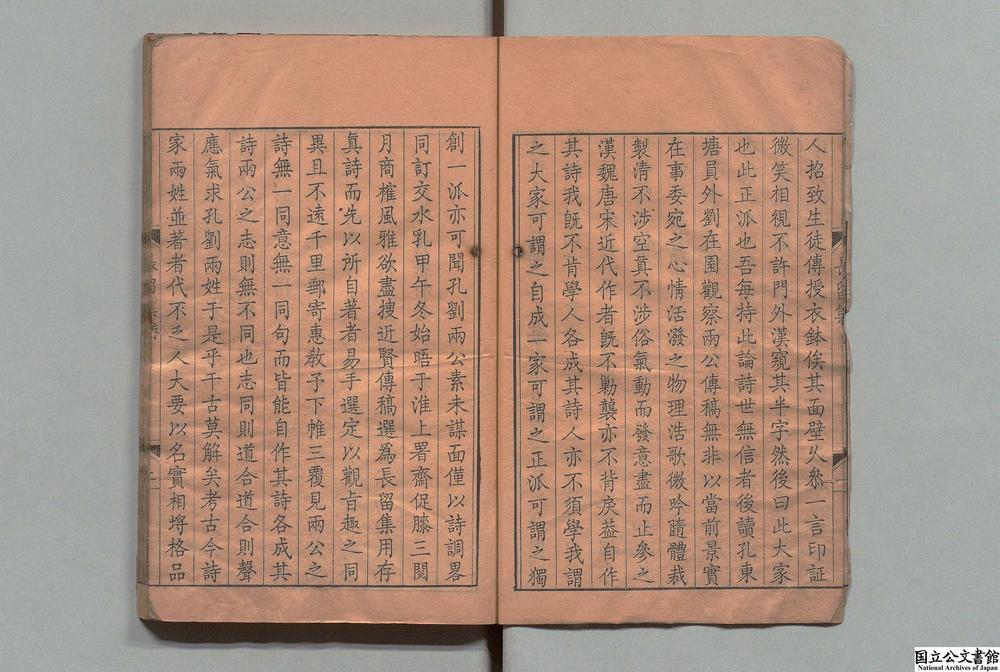 人招致生徒傳授衣鉢俟其面壁久叅一言印証
微笑相視不許門外漢窺其半字然後曰此大家
也此正派也吾每持此論詩世無信者後讀孔東
塘員外劉在園觀察兩公傳稿無非以當前景實
在事委宛之心情活潑之物理浩歌微吟隨體裁
製清不涉空真不涉俗氣動而發意盡而止參之
漢魏唐宋近代作者旣不勦襲亦不背戾葢自作
其詩我旣不肯學人各成其詩人亦不須學我謂
之大家可謂之自成一家可謂之正派可謂之獨
創一派亦可聞孔劉兩公素未謀面僅以詩調畧
同訂交水乳甲午冬始晤于淮上署齋促膝三閱
月商榷風雅欲盡搜近賢傳稿選爲長留集用存
眞詩而先以所自著者易手選定以觀旨趣之同
異且不遠千里郵寄惠敎予下帷三覆見兩公之
詩無一同意無一同句而皆能自作其詩各成其
詩兩公之志則無不同也志同則道合道合則聲
應氣求孔劉兩姓于是乎千古莫解矣考古今詩
家兩姓並著者代不乏人大要以名實相埒格品
長留集
二
國立公文書館
National Archives of Japan